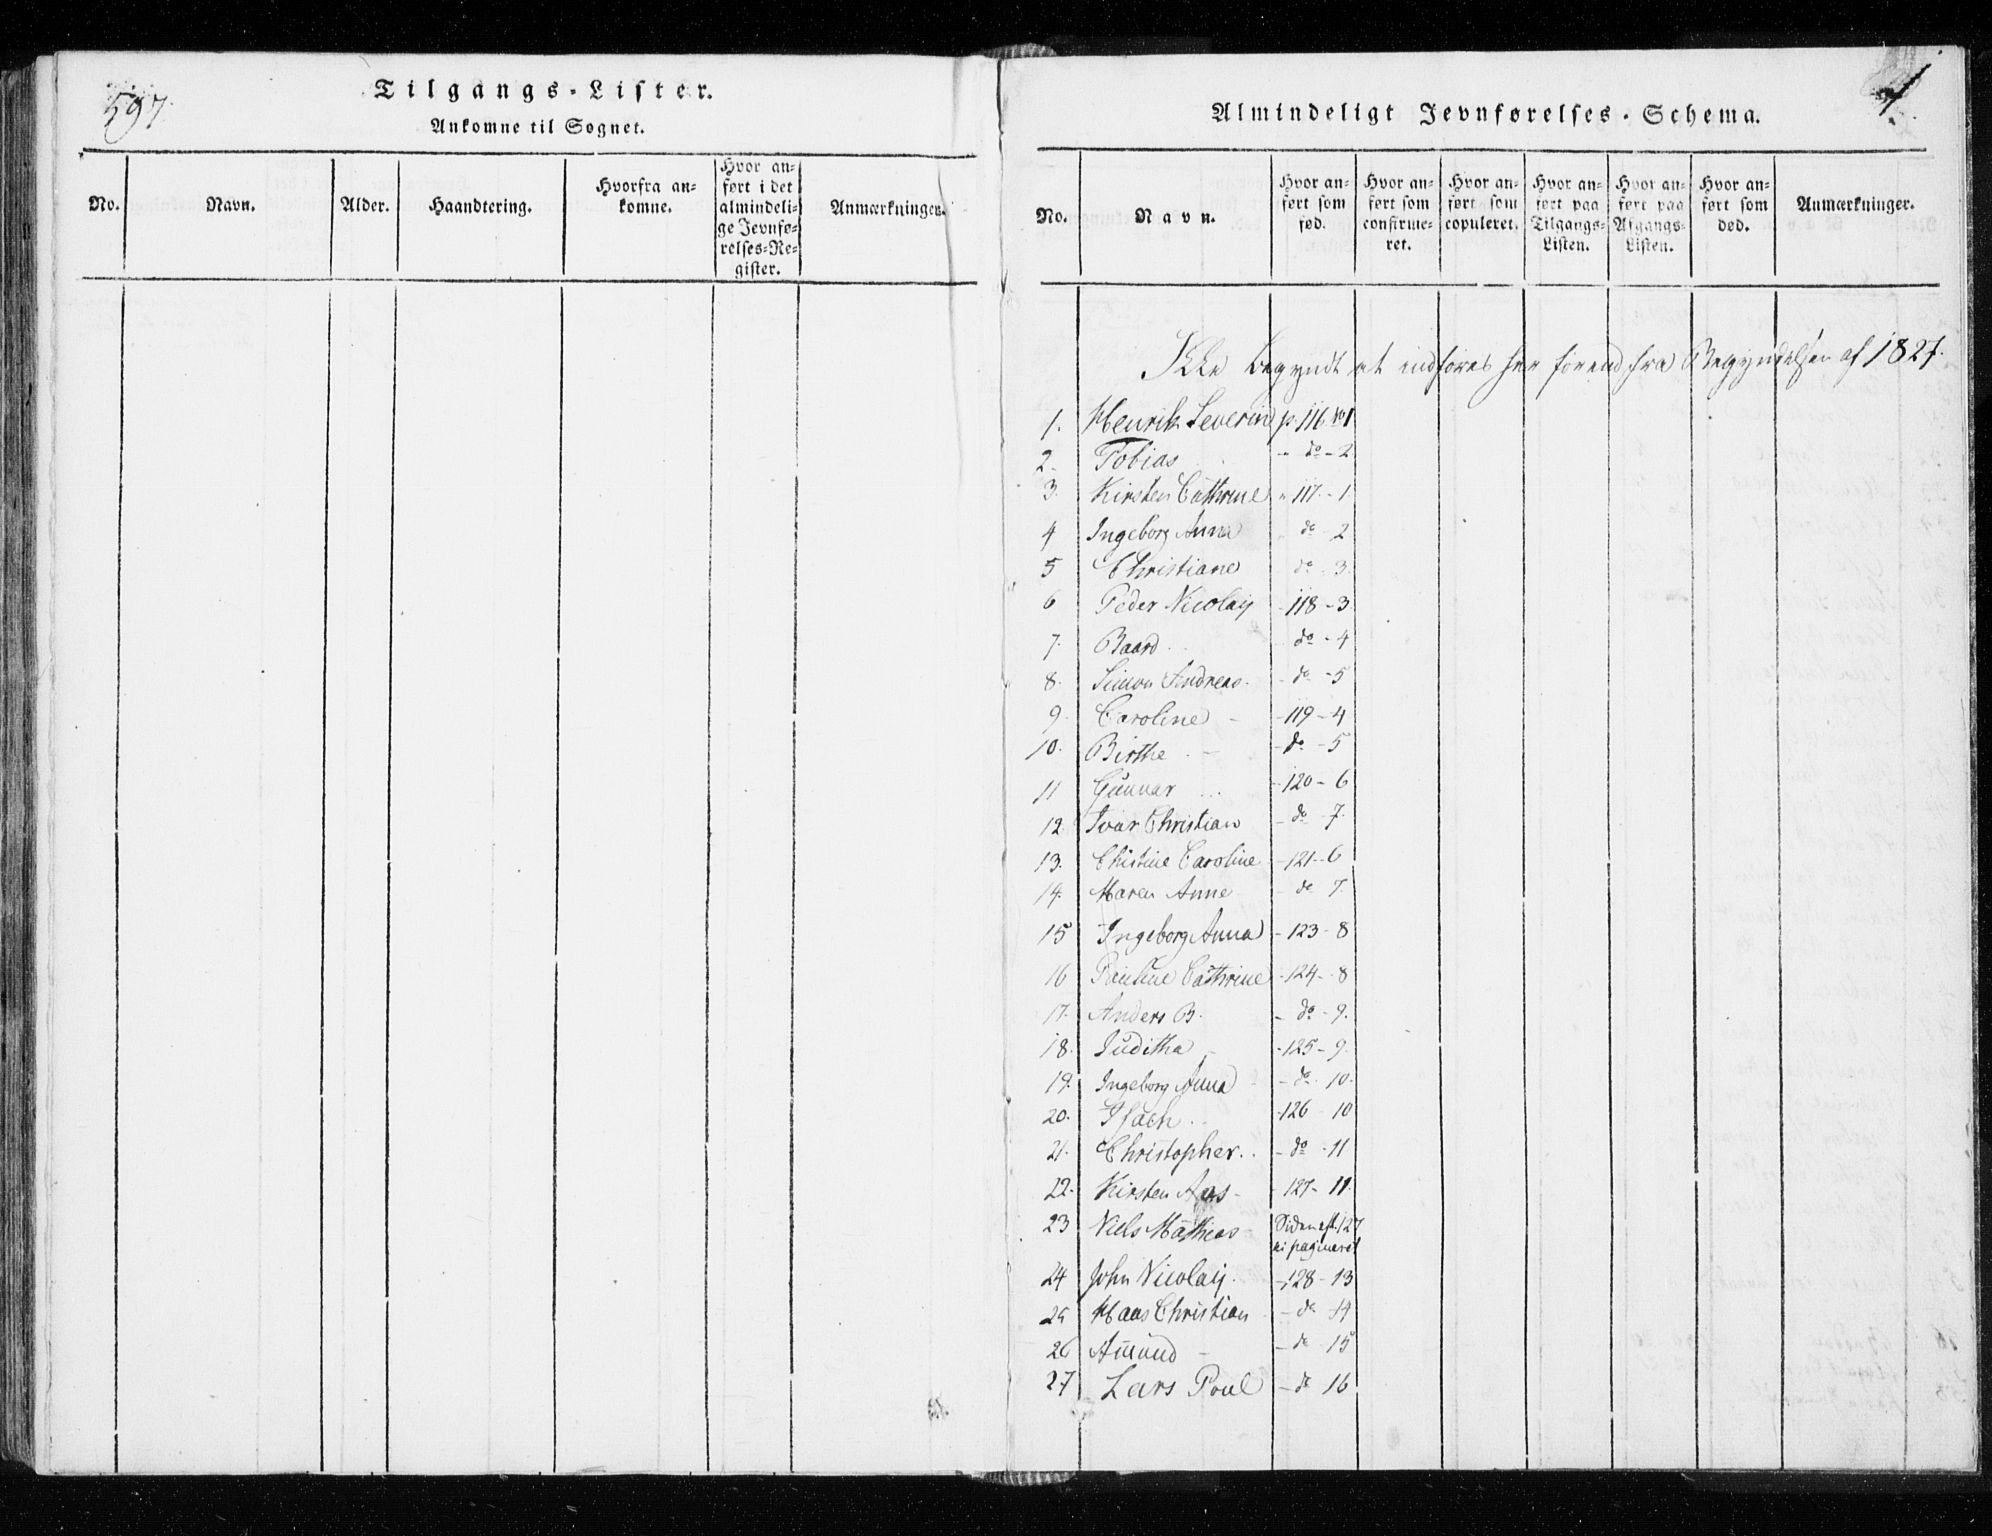 597.
Tilgangs-Lister.
Ankomne til Sognet.
No.
Navn.
Alder.
Haandtering.
Hvorfra an-
komne.
Hvor an-
ført i det
almindeli-
ge Jevnfø-
relses-Re-
gister.
Anmærkninger.
1.
Almindeligt Jevnførelses-Schema.
No.
Navn.
Hvor an-
ført som
fød.
Hvor an-
ført som
confirme-
ret.
Hvor an-
ført som
copuleret.
Hvor an-
ført paa
Tilgangs-
Listen.
Hvor an-
ført paa
Afgangs-
Listen.
Hvor an-
ført som
død.
Anmærkninger.
Ikke begyndt at indføres her førend fra Begyndelsen af 1827.
1. Henrik Severin p. 116 No 1
2. Tobias " do - 2
3. Kirsten Cathrine " 117 - 1
4 Ingeborg Anna do 2
5 Christiane do - 3
6 Peder Nicolaij - 118 - 3
7. Baard do - 4
8. Simon Andreas - do - 5
9. Caroline - 119 - 4
10. Birthe - do - 5
11 Gunnar - 120 - 6
12 Ivar Christian - do - 7.
13. Chistine Caroline - 121 - 6
14. Maren Anne - do 7.
15 Ingeborg Anna - 123 - 8
16 Pauline Cathrine - 124 - 8
17. Anders B. - do - 9.
18. Juditha - 125 - 9.
19. Ingeborg Anna - do - 10.
20. Isach - 126 - 10
21. Christopher - do - 11
22. Kirsten - 127 - 11.
23 Niels Mathias Siden eft. 127
ei pagineret
24 John Nicolaij. - 128 - 13
25 Hans Christian - do - 14
26 Amund - do 15
27 Lars Poul - do 16